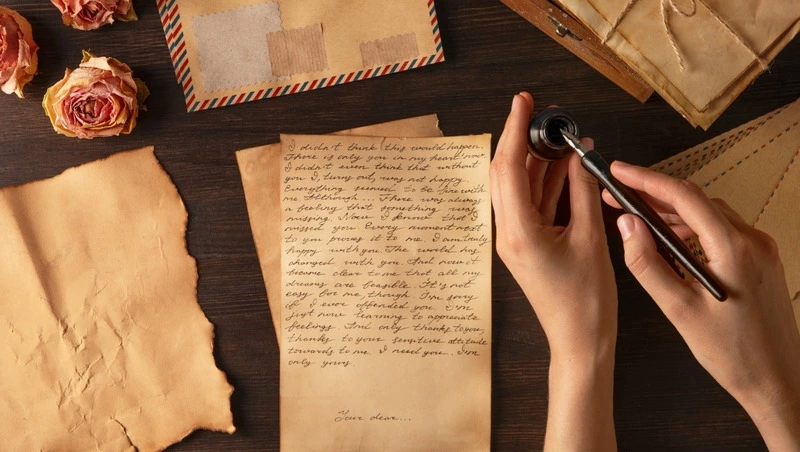 I didn't think this would happen.
There is only you in my heart now.
I didn't even think that without
you I, turns out, was not happy.
Everything seemed to be fine with
me Although... There was always
a feeling that something was
missing. Now I know that I
missed you. Every moment next
to you proves it to me. I am truly
happy with you. The world has
changed with you. And now it
became clear to me that all my
dreams are feasible. It's not
easy for me though. I'm sorry
if I ever offended you. I'm
just now learning to appreciate
feelings. And only thanks to you,
thanks to your sensitive attitude
towards to me. I need you. I'm
only yours.
Your dear...